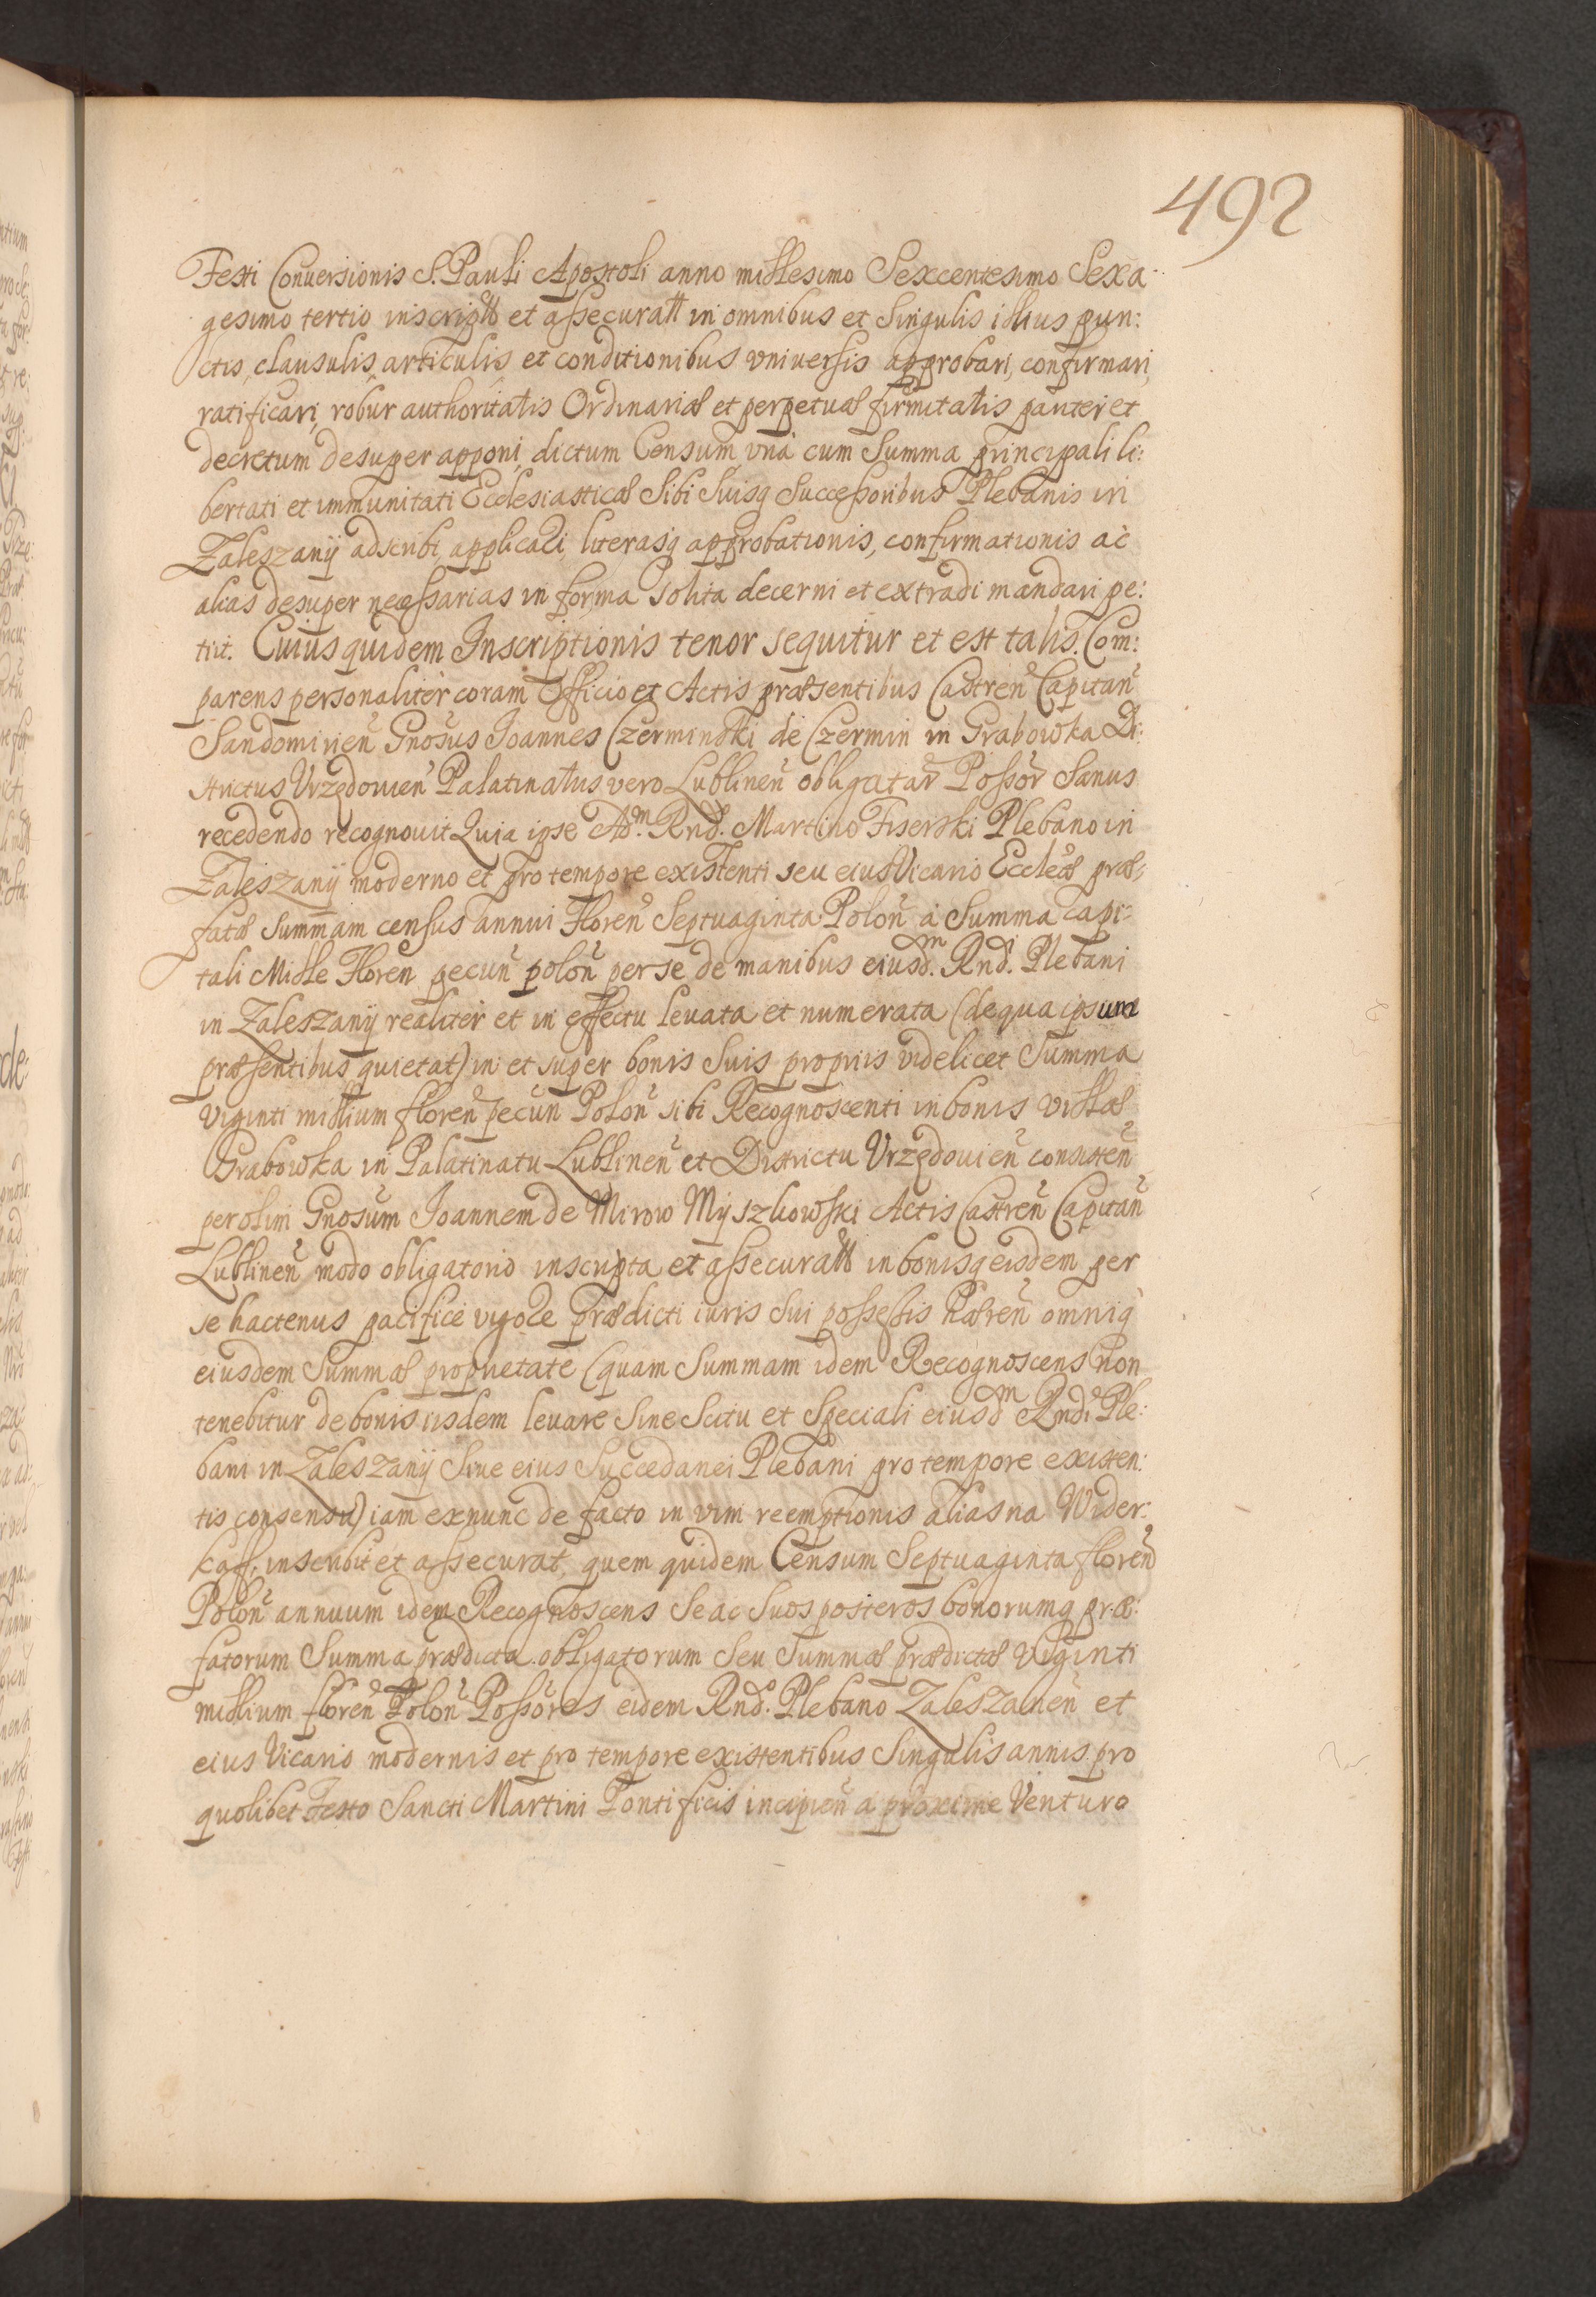 492
Festi Conuersionis S. Pauli Apostoli anno millesimo Sexcentesimo Sexa
gesimo tertio inscript et assecurat in omnibus et Singulis illius pun:
ctis, clausulis, articulis et conditionibus vniuersis approbari, confirmari,
ratificari, robur authoritatis Ordinariæ et perpetuæ firmitatis pariter et
decretum desuper apponi, dictum Censum vna cum Summa principali li:
bertati et immunitati Ecclesiasticæ Sibi Suisq Successoribus Plebanis in
Zaleszany adscribi, applicari, literasq approbationis, confirmationis ac
alias desuper necessarias in forma solita decerni et extradi mandari pe:
tiit. Cuius quidem Inscriptionis tenor sequitur et est talis. Com:
parens personaliter coram Officio et Actis præsentibus Castren Capitan
Sandomirien Gnosus Ioannes Czerminski de Czermin in Grabowka Di:
strictus Vrzędouien Palatinatus vero Lublinen obligatar Possor Sanus
recedendo recognouit Quia ipse Adm. Rndo. Martino Fiserski Plebano in
Zaleszany moderno et pro tempore existenti seu eius Vicario Eccleæ præ:
fatæ Summam census annui Floren Septuaginta Polon a Summa Capi:
tali Mille Floren pecun polon per se de manibus eiusd. Adm Rndi. Plebani
in Zaleszany realiter et in effectu leuata et numerata (de qua ipsum
præsentibus quietat) in et super bonis Suis proprijs videlicet Summa
Viginti millium floren pecun Polon sibi Recognoscenti in bonis villæ
Grabowka in Palatinatu Lublinen et Districtu Vrzędouien consisten
per olim Gnosum Ioannem de Mirow Myszkowski Actis Castren Capitan
Lublinen modo obligatorio inscripta et assecurat in bonisq eisdem per
se hactenus pacifice vigore prædicti iuris Sui possessis hæren omniq
eiusdem Summæ proprietate (quam Summam idem Recognoscens non
tenebitur de bonis iisdem leuare Sine Scitu et Speciali eiusdm Rndi Ple:
bani in Zaleszany Siue eius Succedanei Plebani pro tempore existen:
tis consensu) iam exnunc de facto in vim reemptionis alias na Wider:
kaff. inscribit et assecurat, quem quidem Censum Septuaginta floren
Polon annuum idem Recognoscens Se ac Suos posteros bonorumq præ:
fatorum Summa prædicta obligatorum Seu Summæ prædictæ Viginti
millium floren Polon Possores eidem Rndo. Plebano Zaleszanen et
eius Vicario modernis et pro tempore existentibus Singulis annis pro
quolibet Festo Sancti Martini Pontificis incipien a proxime Venturo